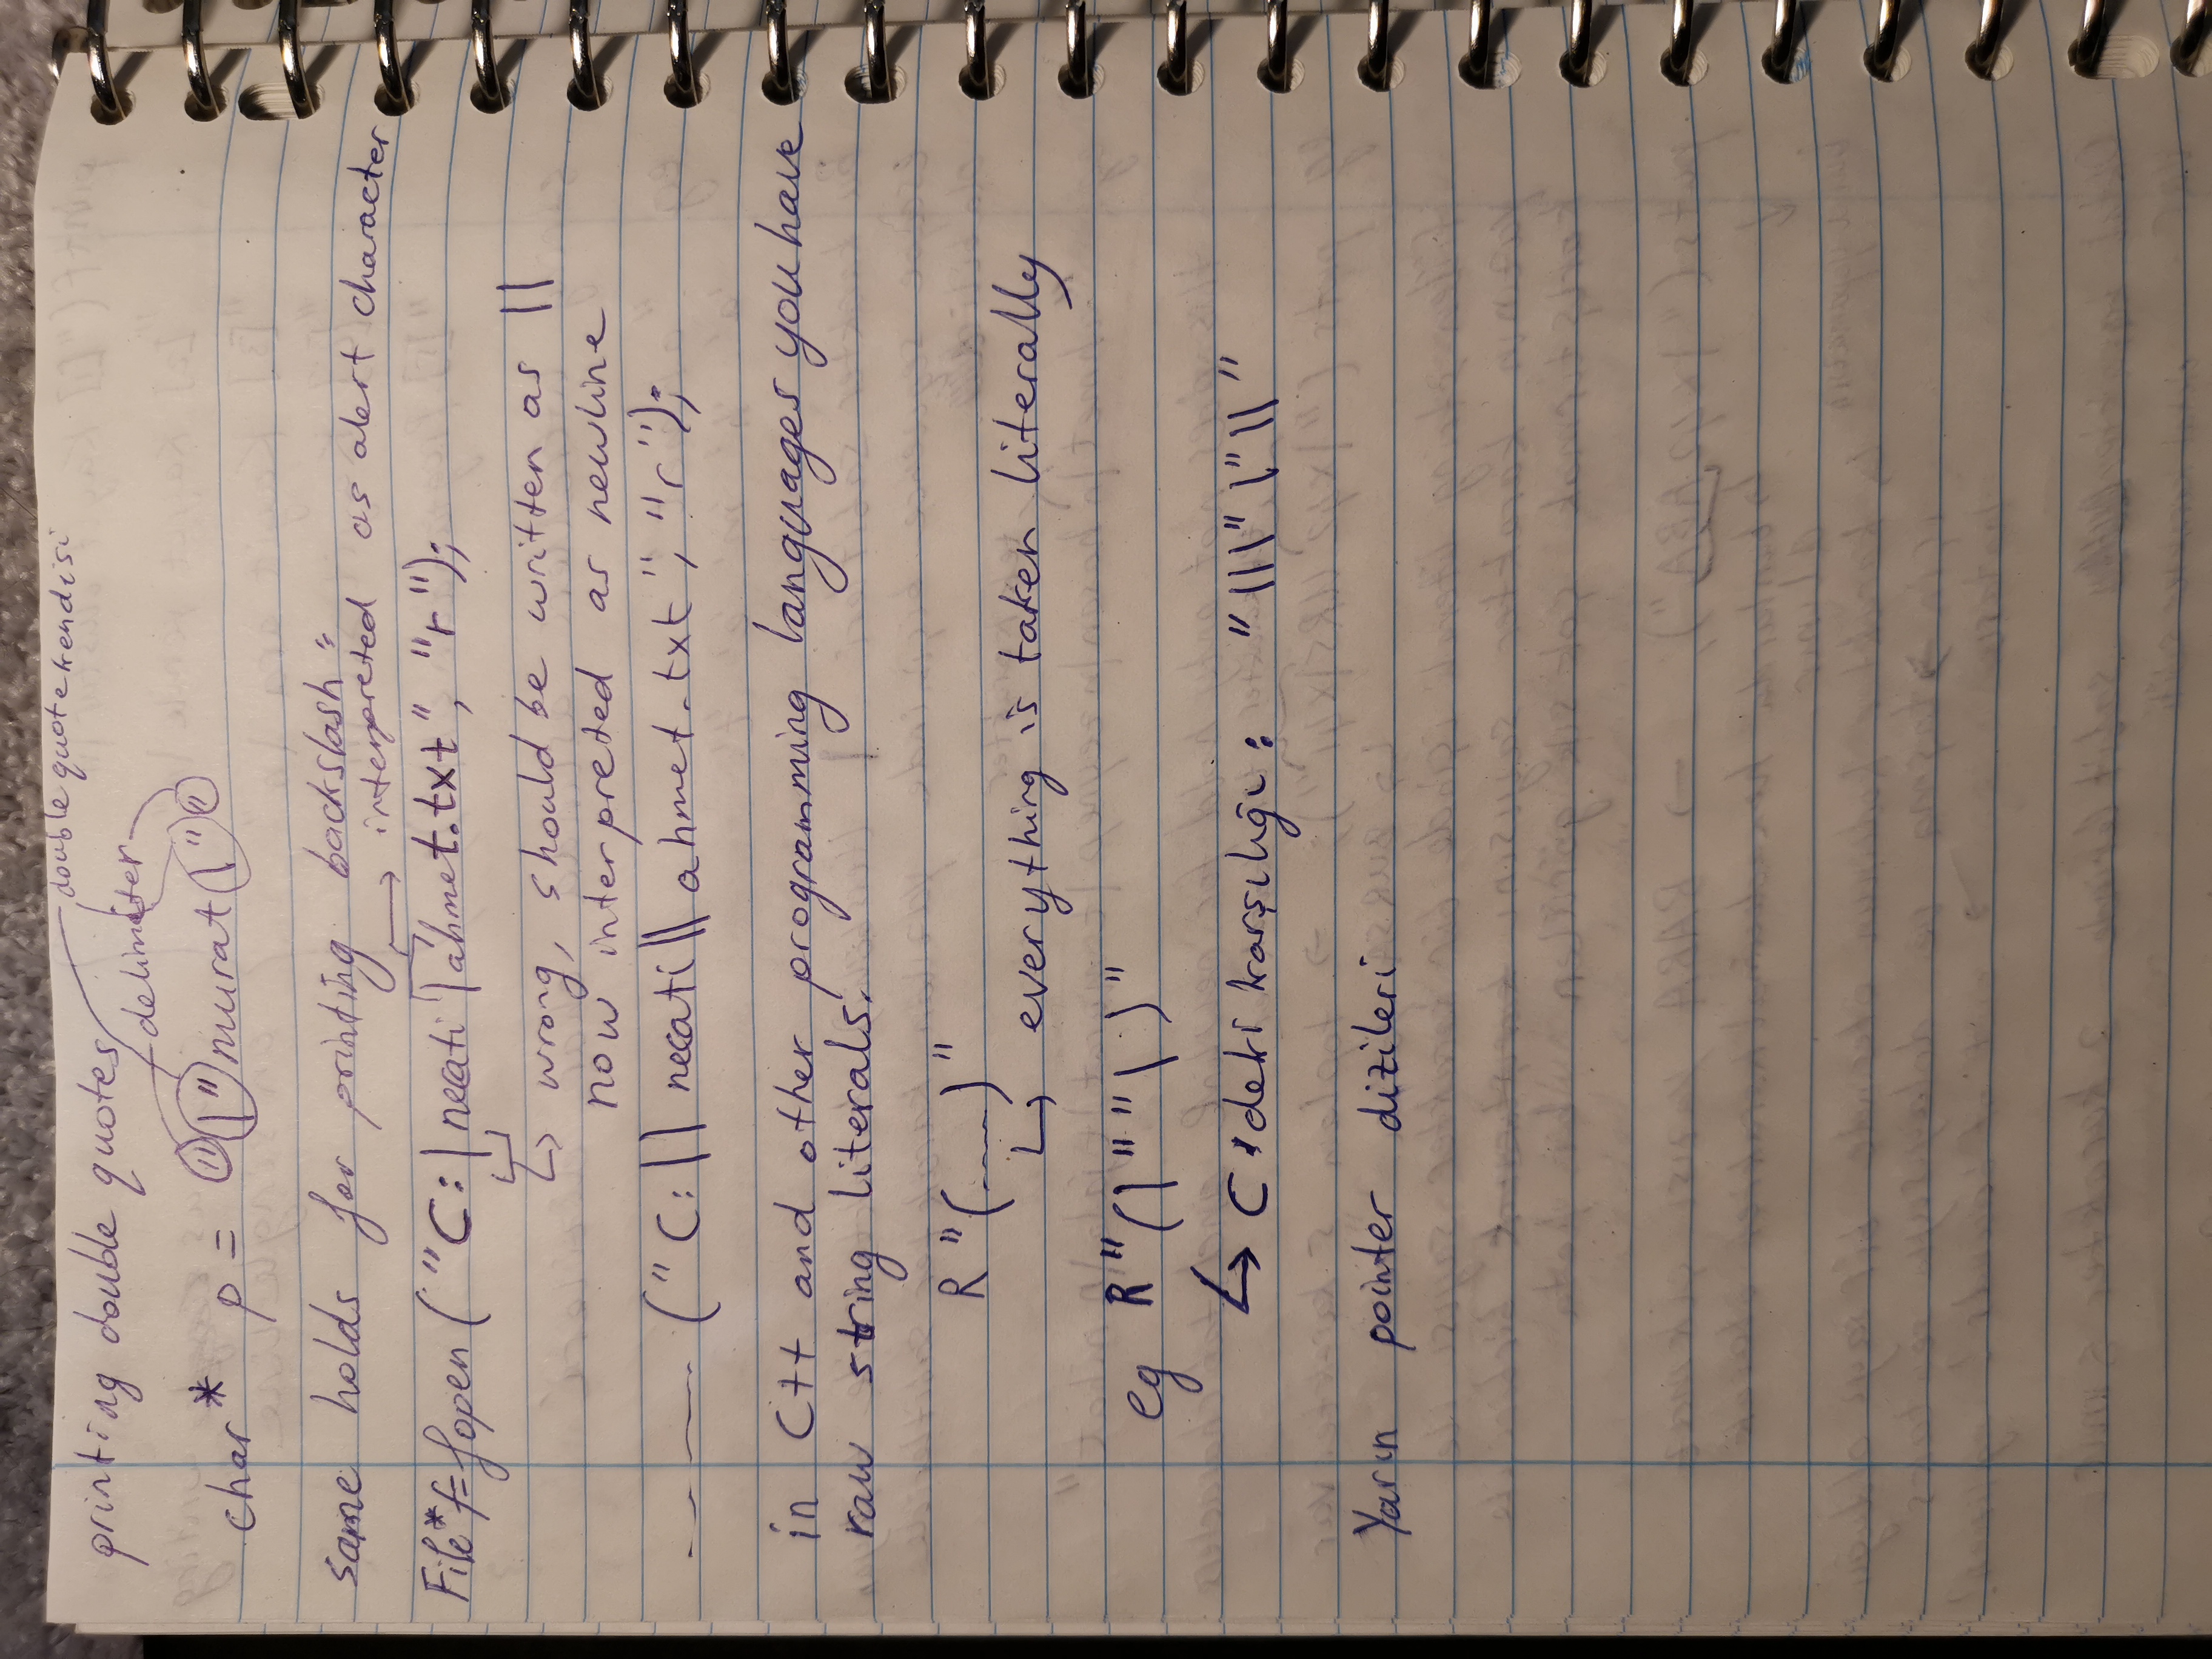 double quote kendisi
printing double quotes
delimiter
char* p = "\"murat\""
same holds for printing backslash:
interpreted as alert character
File*f=fopen ("C:\necati\ahmet.txt", "r");
wrong, should be written as \\
now interpreted as newline
("C:\\necati\\ahmet.txt", "r");
in C++ and other programming languages you have
raw string literals.
R"(....)"
everything is taken literally
eg R"(\""\)"
C'deki karşılığı: "\\\"\"\\"
Yarın pointer dizileri